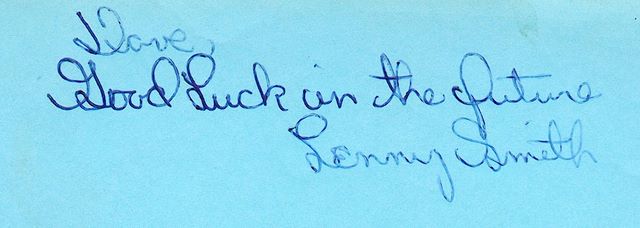 Dave,
Good Luck in the future
Lenny Smith